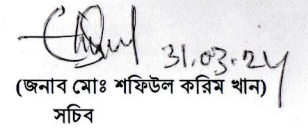 31.03.24
(জনাব মোঃ শফিউল করিম খান)
সচিব